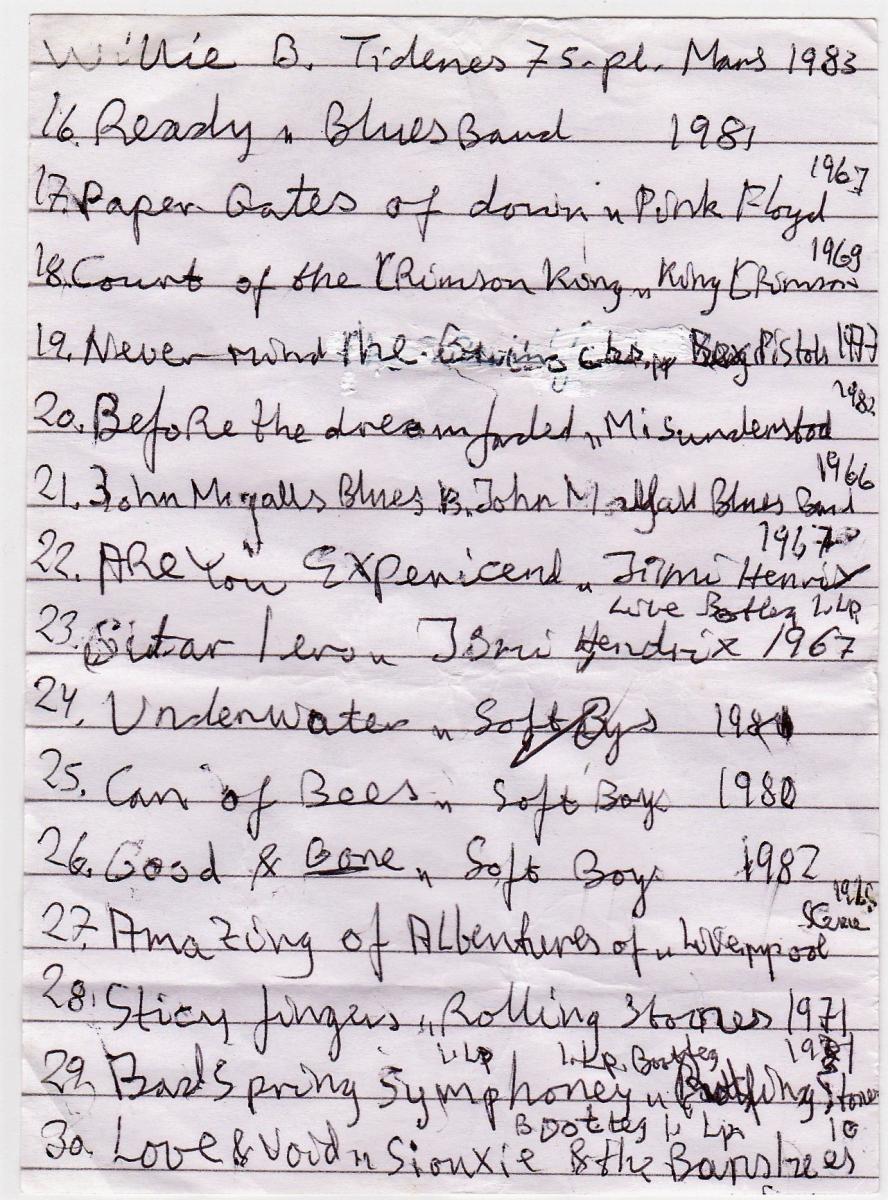 Willie B. Tidenes 75. pl. Mars 1983
16. Ready " Blues Band 1981
1967
17. Paper Gates of down " Pink Floyd
1969
18. Court of the CRimson King " King CRimson
19. Never mind the Pistols 1977
1982
20. BefoRe the dream faded " Misunderstod
1966
21. John Blues B. John Blues Band
1967
22. ARe You Expenicend " Jimi Henrix
Live Bootleg 1. Lp
23. Sitar " Jimi Hendrix 1967
24. Underwater " Soft Boys 1981
25. Can of Bees " Soft Boys 1980
26. Good & Gone " Soft Boys 1982
Scene
27. AmaZing of Albentures of " Liverppool
28. Sticy fingers " Rolling Stones 1971
1. Lp 1. Lp. Bootleg
29. BadSpring Symphoney " Stones
Bootleg 1. Lp
30. Love & Void " Siouxie & the Banshees